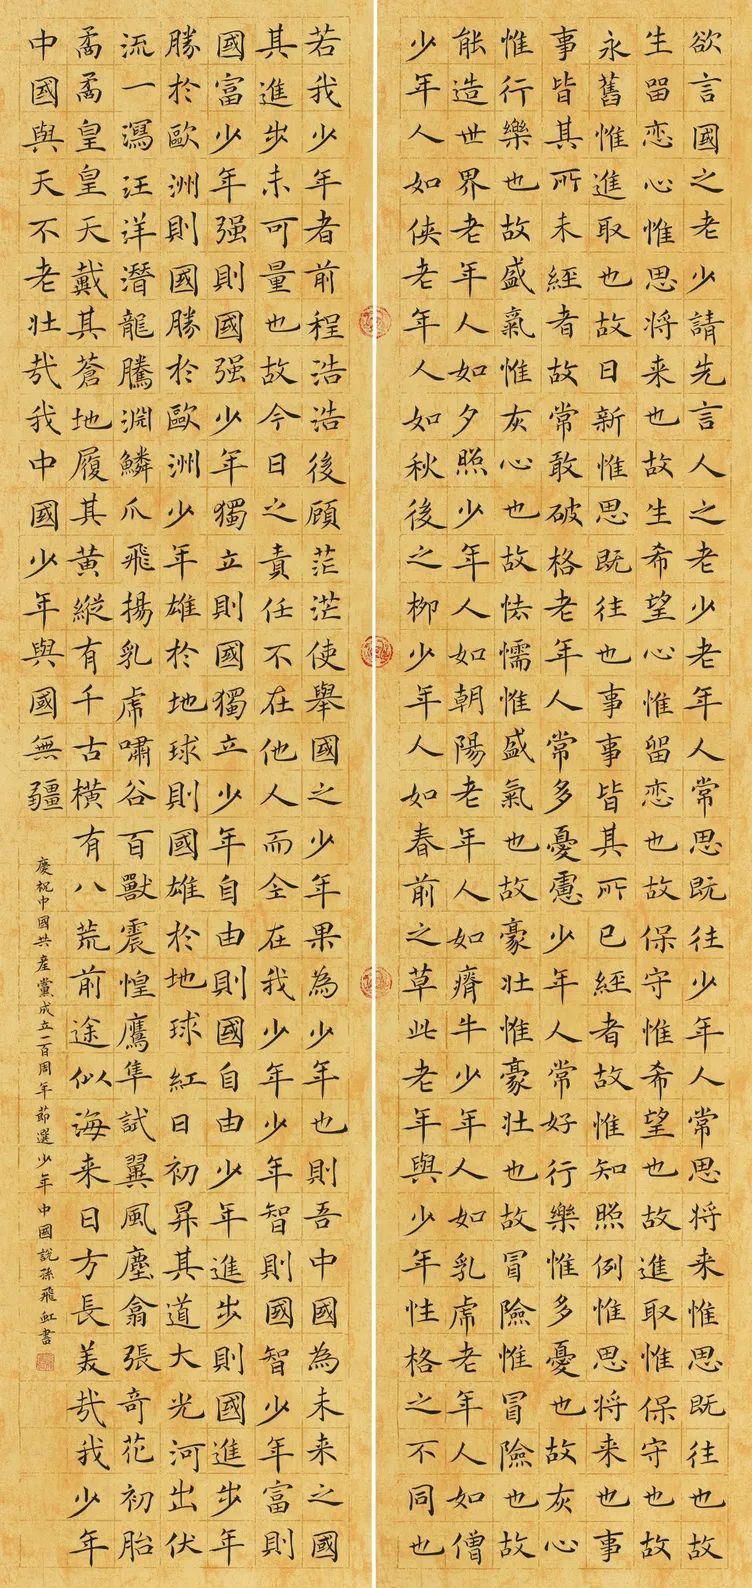 欲言國之老少請先言人之老少老年人常思既往少年人常思将来惟思既往也故
生留恋心惟思将来也故生希望心惟留恋也故保守惟希望也故進取惟保守也故
永舊惟進取也故日新惟思既往也事事皆其所已經者故惟知照例惟思将来也事
事皆其所未經者故常敢破格老年人常多憂慮少年人常好行樂惟多憂也故灰心
惟行樂也故盛氣惟灰心也故怯懦惟盛氣也故豪壮惟豪壮也故冒險惟冒險也故
能造世界老年人如夕照少年人如朝陽老年人如瘠牛少年人如乳虎老年人如僧
少年人如俠老年人如秋後之柳少年人如春前之草此老年與少年性格之不同也
若我少年者前程浩浩後顧茫茫使舉國之少年果為少年也則吾中國為未来之國
其進步未可量也故今日之責任不在他人而全在我少年少年智則國智少年富則
國富少年强則國强少年獨立則國獨立少年自由則國自由少年進步則國進步年
勝於歐洲則國勝於歐洲少年雄於地球則國雄於地球紅日初昇其道大光河出伏
流一瀉汪洋潛龍騰淵鱗爪飛揚乳虎嘯谷百獸震惶鷹隼試翼風塵翕張奇花初胎
矞矞皇皇天戴其蒼地履其黃縱有千古横有八荒前途似海来日方長美哉我少年
中國與天不老壮哉我中國少年與國無疆
慶祝中國共産黨成立一百周年節選少年中國説孫飛虹書